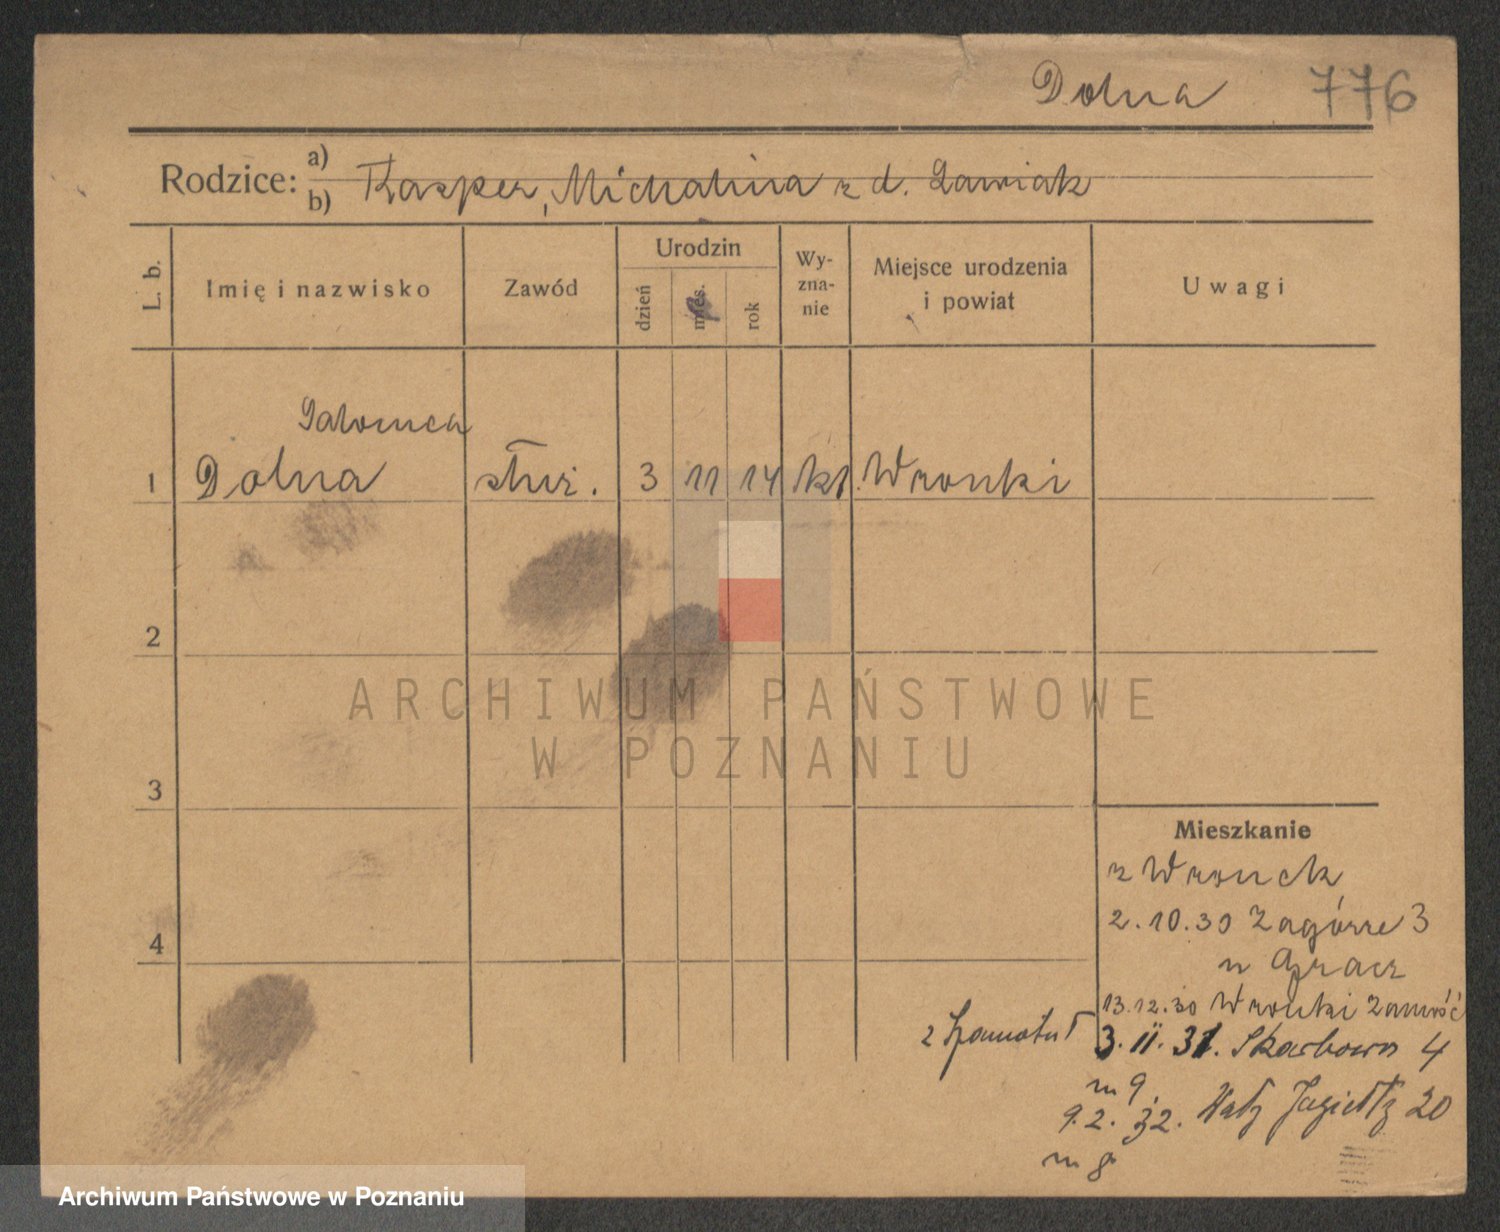 Dolna 776
Rodzice: a)
b) Kasper, Michalina z d. Ławniak
L. b. Imię i nazwisko Zawód Urodzin dzień mies. rok Wy-zna-nie Miejsce urodzenia i powiat Uwagi
Salomea
1 Dolna służ. 3 11 14 kt. Wronki
2
ARCHIWUM PAŃSTWOWE
W POZNANIU
3
Mieszkanie
z Wronek
2.10.30 Zagórze 3
u Gracz
4
13.12.30 Wronki Zamość
z Szamotuł 3.II.31. Skarbowa 4
m 9.
9.2.32. Wały Jagiełły 20
m 8
Archiwum Państwowe w Poznaniu